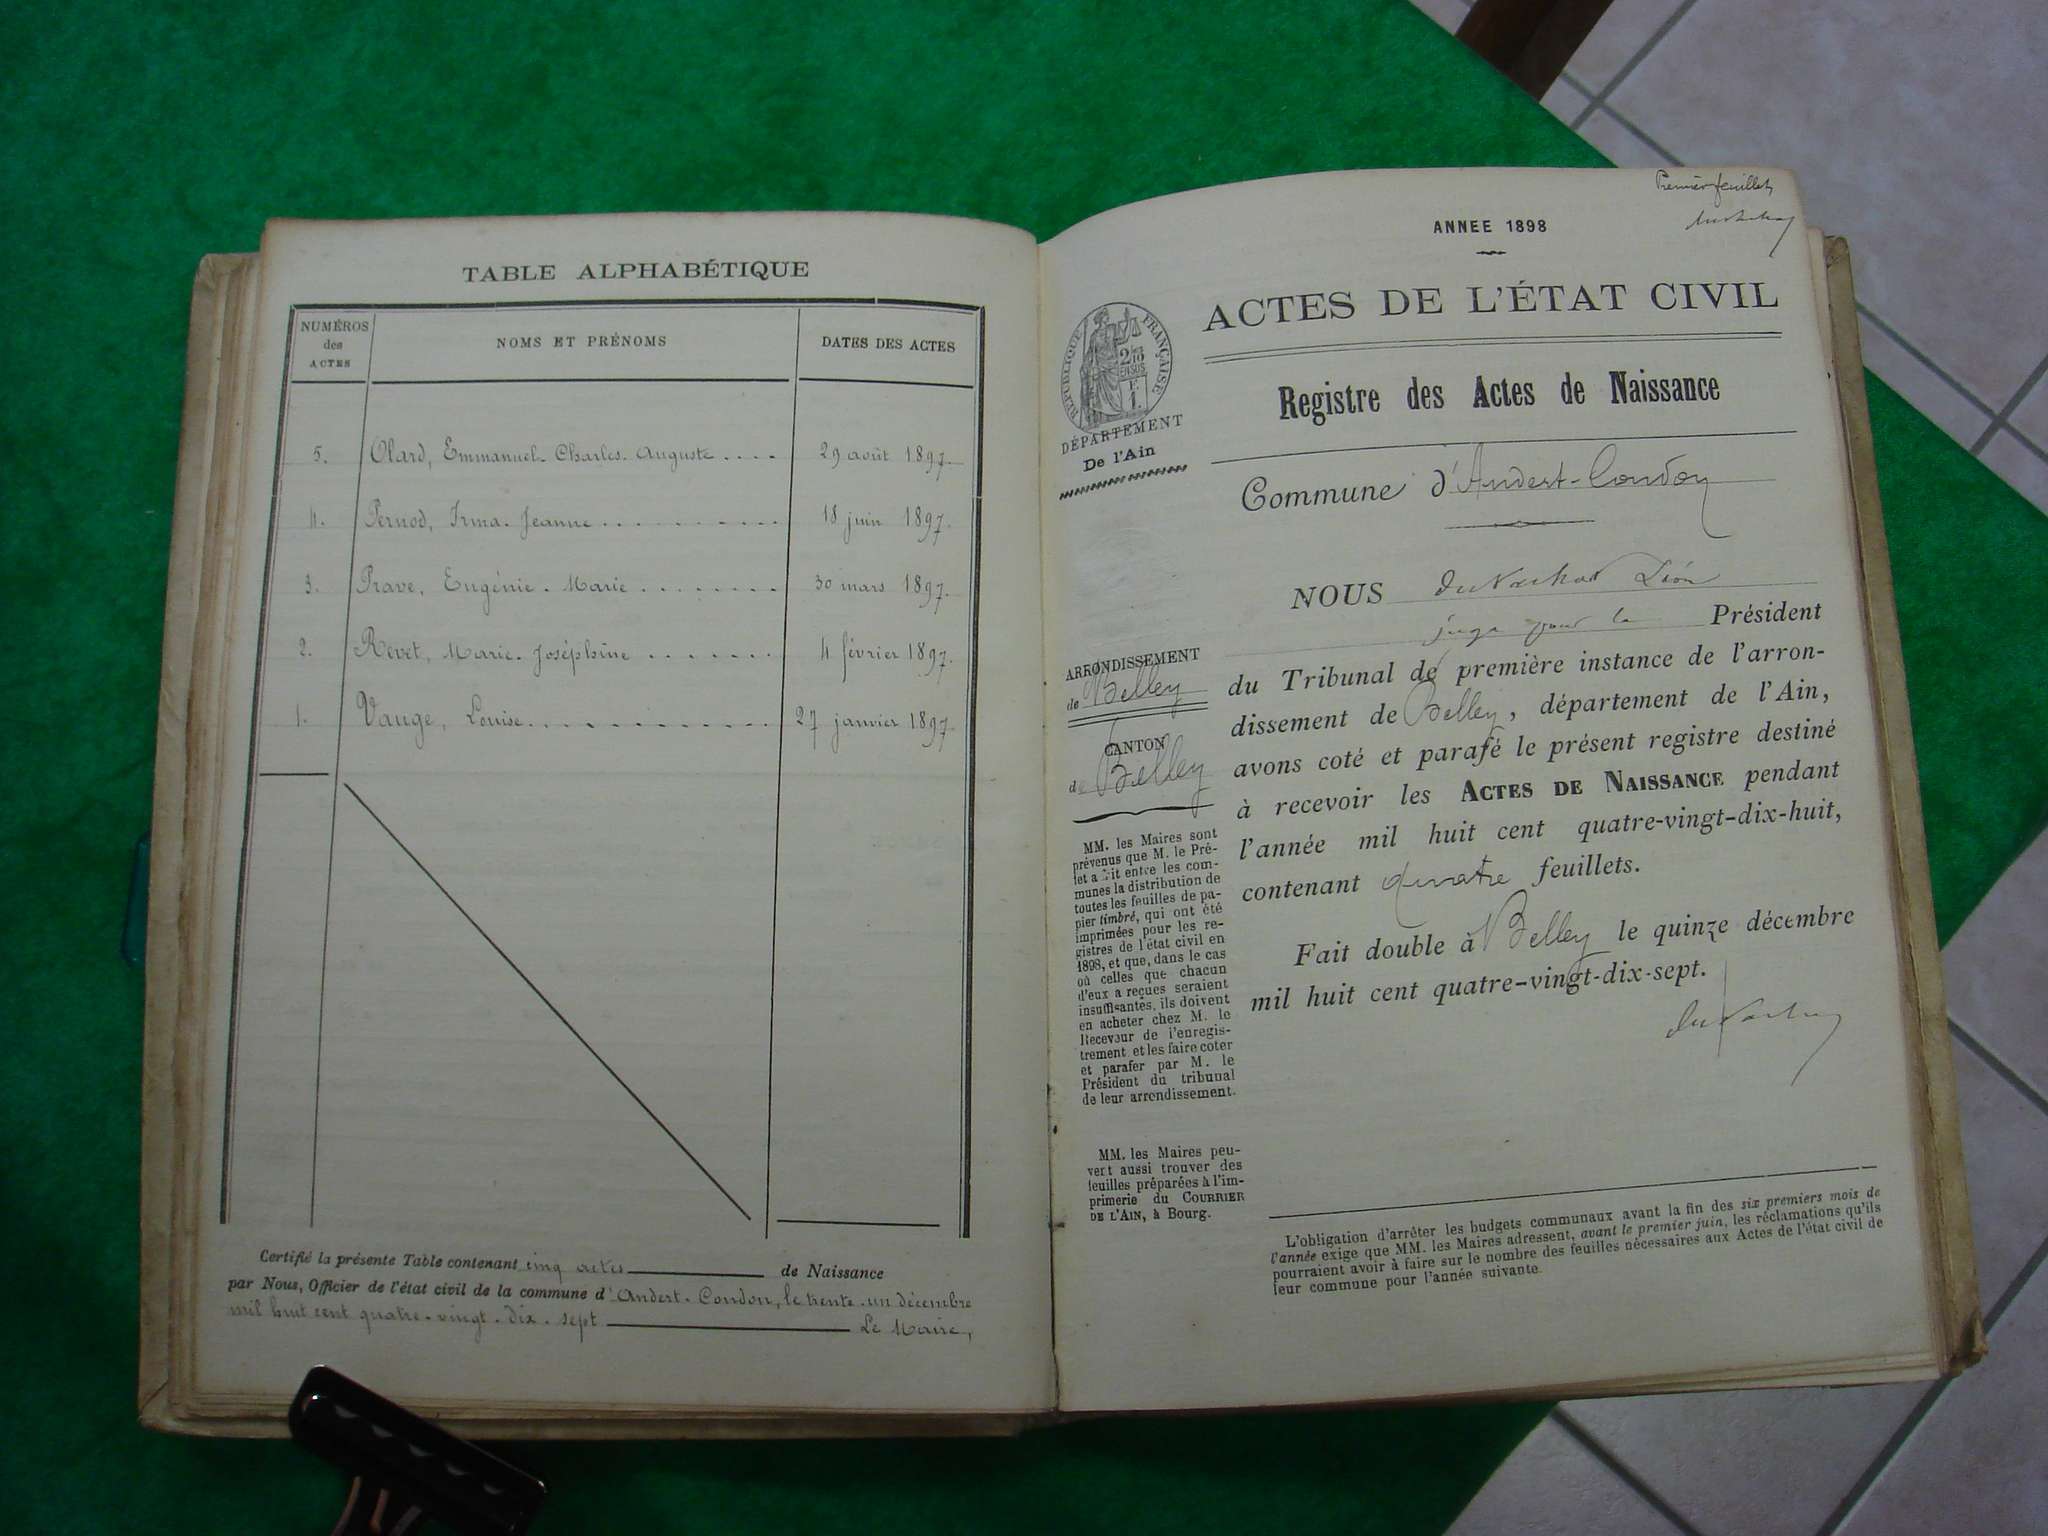 TABLE ALPHABÉTIQUE
NUMÉROS des ACTES
NOMS ET PRÉNOMS
DATES DES ACTES
5. Olard, Emmanuel-Charles-Auguste .... 29 août 1897.
4. Pernod, Irma-Jeanne .......... 18 juin 1897.
3. Prave, Eugénie-Marie ........ 30 mars 1897.
2. Revet, Marie-Joséphine ....... 4 février 1897.
1. Vauge, Louise .......... 27 janvier 1897.
Certifié la présente Table contenant cinq actes de Naissance
par Nous, Officier de l'état civil de la commune d'Andert-Condon, le trente-un décembre
mil huit cent quatre-vingt-dix-sept Le Maire,
Premier feuillet
ANNEE 1898
ACTES DE L'ÉTAT CIVIL
RÉPUBLIQUE FRANÇAISE
DÉPARTEMENT
De l'Ain
Registre des Actes de Naissance
Commune d'Andert-Condon
NOUS Léon
juge pour le Président
du Tribunal de première instance de l'arron-
dissement de Belley, département de l'Ain,
avons coté et parafé le présent registre destiné
à recevoir les ACTES DE NAISSANCE pendant
l'année mil huit cent quatre-vingt-dix-huit,
contenant quatre feuillets.
Fait double à Belley le quinze décembre
mil huit cent quatre-vingt-dix-sept.
ARRONDISSEMENT
de Belley
CANTON
de Belley
MM. les Maires sont
prévenus que M. le Pré-
fet a fait entre les com-
munes la distribution de
toutes les feuilles de pa-
pier timbré, qui ont été
imprimées pour les re-
gistres de l'état civil en
1898, et que, dans le cas
où celles que chacun
d'eux a reçues seraient
insuffisantes, ils doivent
en acheter chez M. le
Receveur de l'enregis-
trement et les faire coter
et parafer par M. le
Président du tribunal
de leur arrondissement.
MM. les Maires peu-
vert aussi trouver des
feuilles préparées à l'im-
primerie du COURRIER
DE L'AIN, à Bourg.
L'obligation d'arrêter les budgets communaux avant la fin des six premiers mois de
l'année exige que MM. les Maires adressent, avant le premier juin, les réclamations qu'ils
pourraient avoir à faire sur le nombre des feuilles nécessaires aux Actes de l'état civil de
leur commune pour l'année suivante.